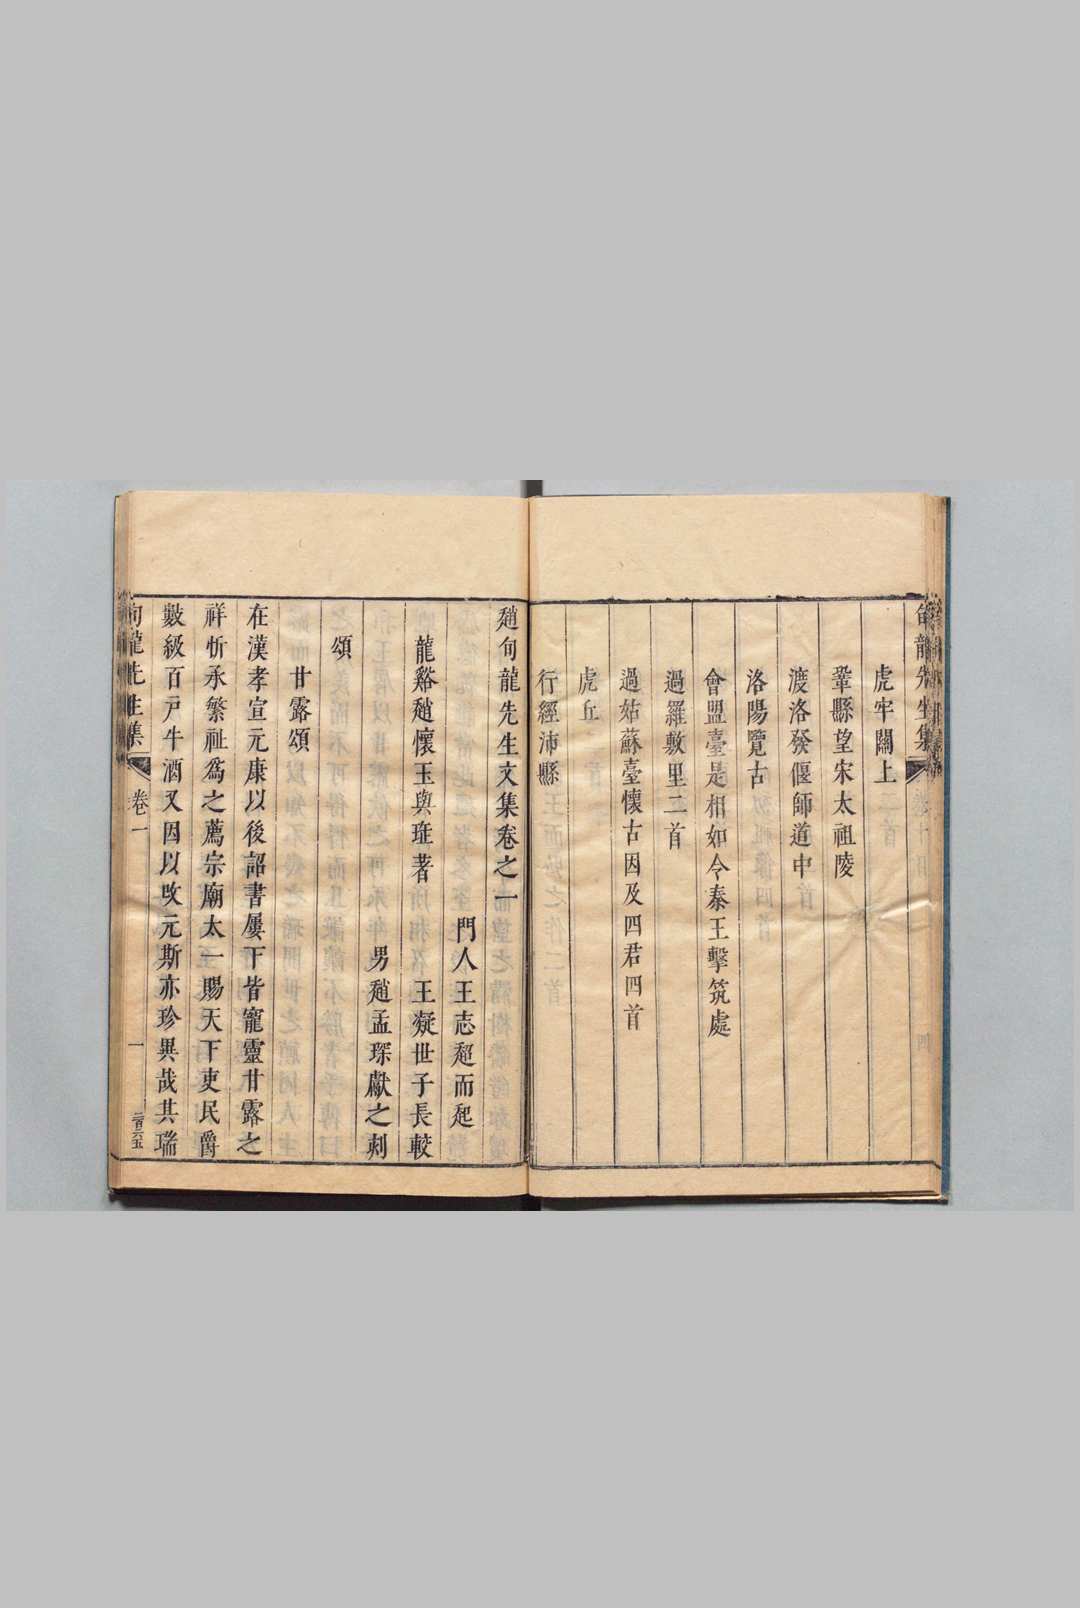 虎牢關上
鞏縣望宋太祖陵
渡洛發偃師道中
洛陽覽古
會盟臺是相如令秦王擊筑處
過羅敷里二首
過姑蘇臺懷古因及四君四首
虎丘
行經沛縣
趙旬龍先生文集卷之一
門人王志超而起
龍谿趙懷玉與珄著 王凝世子長較
男趙孟琛獻之刻
頌
甘露頌
在漢孝宣元康以後詔書屢下皆寵靈甘露之
祥忻承繁祉為之薦宗廟太一賜天下吏民爵
數級百戸牛酒又因以改元斯亦珍異哉其瑞
旬龍先生集 卷一 一 二百六五